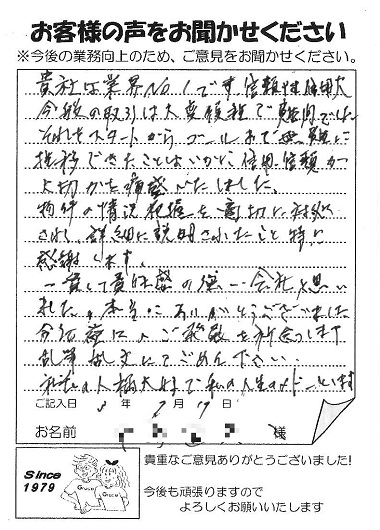 お客様の声をお聞かせください
※今後の業務向上のため、ご意見をお聞かせください。
貴社は業界No1です 信頼性 信用大
今般の取引は大変複雑で難関でした
それをスタートからゴールまで無難に
推移できたことはいかに信用、信頼が
大切かを痛感いたしました。
物件の情況把握を適切に対処
され、詳細に説明されたこと特に
感謝します。
一貫して責任感の強い会社と思い
ました。本当にありがとうございました
今後益々のご発展を祈念します
乱筆乱文にてごめん下さい.
ご記入日 年 月 日
お名前 様
Since
1979
貴重なご意見ありがとうございました!
今後も頑張りますので
よろしくお願いいたします